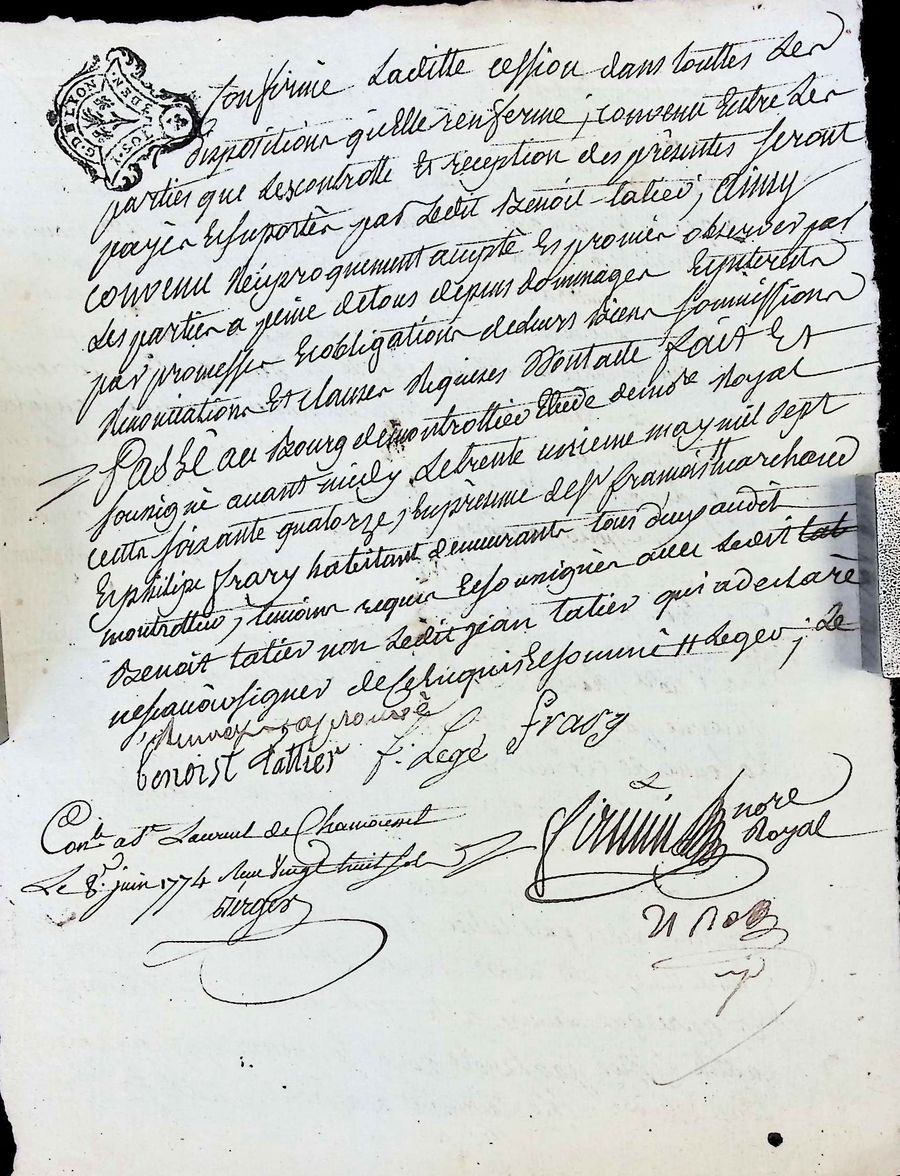 G. D. LYON
Confirme Laditte cession dans touttes Les
dispotitions qu'Elle renferme; convenu Entre Les
parties que Lescontrolle Et réception des présentes seront
payés Et suportés par Ledit Benoit tatier; ainsy
convenu Réciproquement accepté Et promis observer par
Les parties a peine de tous dépens dommages Et interets
par promesses Et obligations de Leurs Biens soumissions
Renonciations Et clauses Requises Dont acte fait Et
Passé au Bourg de montrottier Etude de nore Royal
sousigné avant midy Le trente unieme may mil sept
cents soixante quatorze, En présence de Sr françois marchand
Et philipe frary habitant demeurants tous deux audit
montrottier, témoins requis Et sousignés avec Ledit
Benoit tatier non Ledit jean tatier qui a declaré
ne savoir signer de ce Enquis Et sommé # Leger; Le
Renvoy approuvé
benoist tattier f. Legé frary
nore
Royal
Conlé a St Laurent de Chamousset
Le 8e juin 1774 Reçu Vingt huit sols